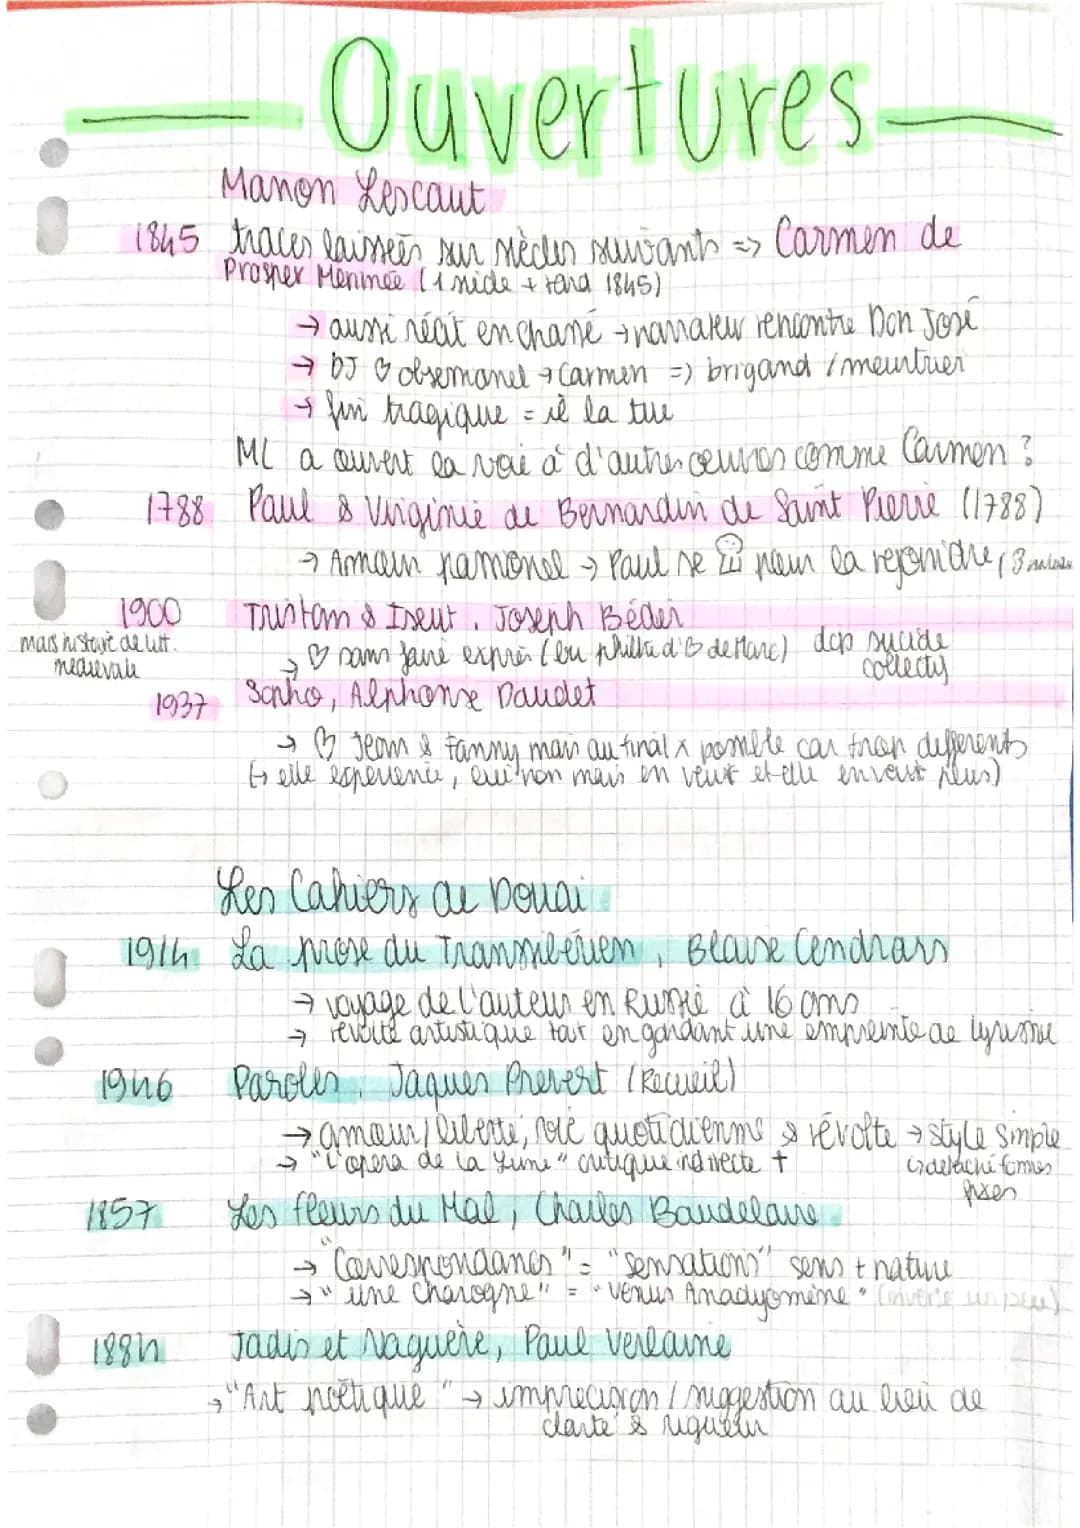 Ouvertures
Manon Lescaut
1845 traces laissées sur siècles suivants => Carmen de
Prosper Merimée (1 siècle + tard 1845)
→ aussi récit enchassé → narrateur rencontre Don José
→ DJ ♡ obsessionel → Carmen => brigand / meurtrier
→ fin tragique = il la tue
ML a ouvert la voie à d'autres oeuvres comme Carmen ?
1788 Paul & Virginie de Bernardin de Saint Pierre (1788)
→ Amour passionel → Paul se pour la rejoindre
1900 Tristam & Iseut, Joseph Béder
mais histoire de litt.
médievale
→ ♡ sans faire exprès (bu philtre d'♡ de Marc) dcp suicide
collectif
1937 Sapho, Alphonse Daudet
→ ♡ Jean & Fanny mais au final x possible car trop differents
(→ elle experience, lui non mais en veut et elle en veut plus)
Les Cahiers de Douai
1914 La prose du Transsibérien, Blaise Cendrars
→ voyage de l'auteur en Russie à 16 ans
→ révolte artistique tout en gardant une empreinte de lyrisme
1946 Paroles, Jaques Prevert (Recueil)
→ amour/liberté, vie quotidienne & révolte → style simple
→ "L'opera de la lune" critique indirecte +
↳ détaché formes
fixes
1857 Les fleurs du Mal, Charles Baudelaire
→ "Correspondances" = "Sensations" sens + nature
→ "une charogne" = "Venus Anadyomène" (inverse un peu)
1884 Jadis et Naguère, Paul Verlaine
→ "Art poétique" → imprecision / suggestion au lieu de
clarté & rigueur